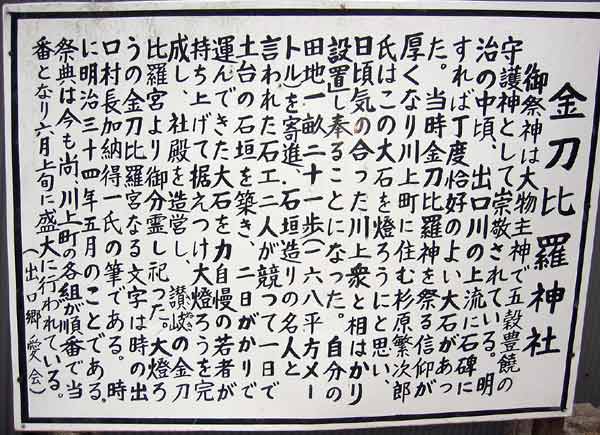 金刀比羅神社
御祭神は大物主神で五穀豊饒の
守護神として崇敬されている。明
治の中頃、出口川の上流に石碑に
すれば丁度恰好のよい大石があっ
た。当時金刀比羅神を祭る信仰が
厚くなり川上町に住む杉原繁次郎
氏はこの大石を燈ろうにと思い、
日頃気の合った川上衆と相はかり
設置し奉ることになった。自分の
田地一畝二十一歩(一六八平方メー
トル)を寄進、石垣造りの名人と
言われた石工二人が競って一日で
土台の石垣を築き、二日がかりで
運んできた大石を力自慢の若者が
持ち上げて据えつけ大燈ろうを完
成し、社殿を造営し、讃岐さぬきの金刀
比羅宮より御分霊し祀った。大燈ろ
うの金刀比羅宮なる文字は時の出
口村長加納得一氏の筆である。時
に明治三十四年五月のことである。
祭典は今も尚、川上町の各組が順番で当
番となり六月上旬に盛大に行われている。
(出口郷愛会)